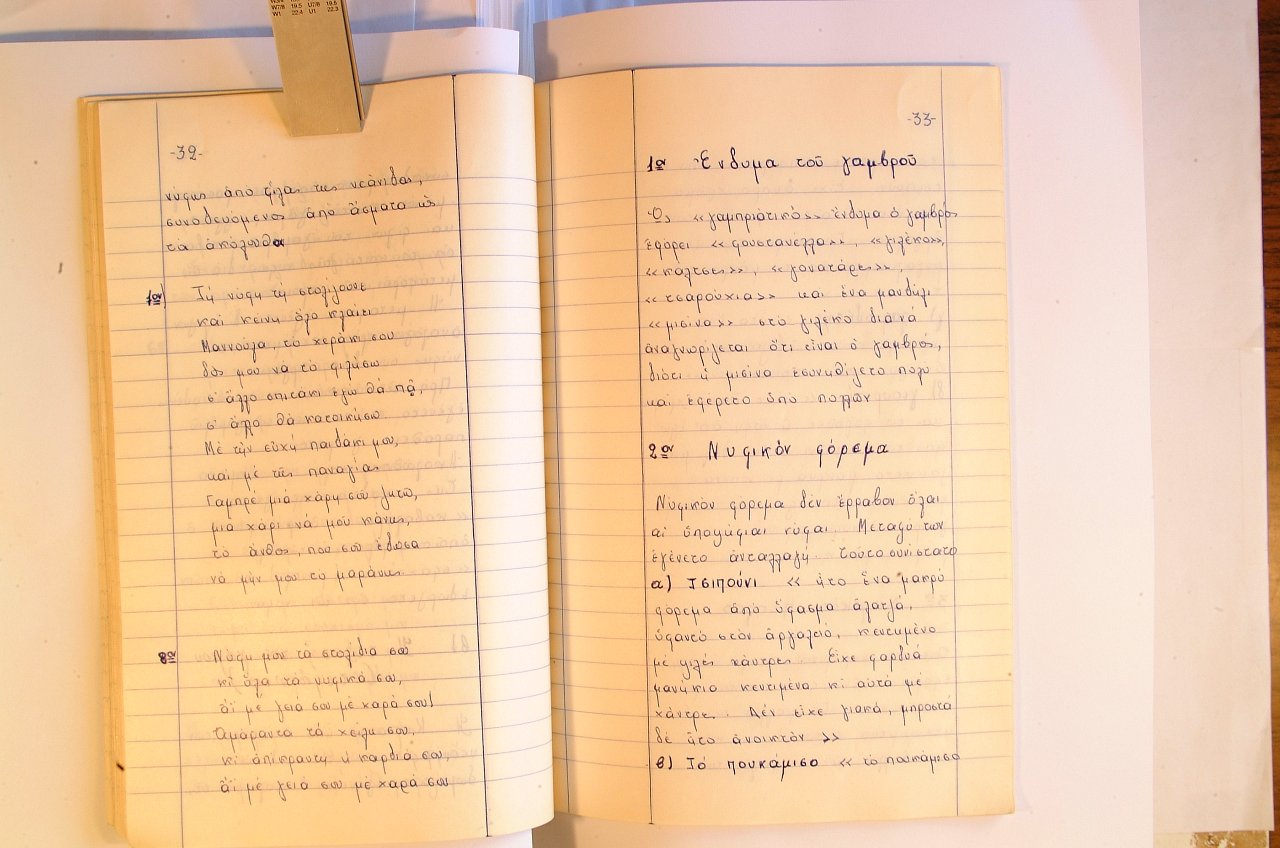 W7/8 19.5 U7/8 19.6
W1 22.4 U1 22.3
-32-
νύφης ἀπό φίλας της νεάνιδας,
συνοδευόμενος ἀπό ἄσματα ὡς
τα ἀκόλουθα
1ον) Τή νύφη τή στολίζουνε
καί κείνη ὅλο κλαίει
Μαννούλα, τό χεράκι σου
δός μου νά τό φιλήσω
σ' ἄλλο σπιτάκι ἐγώ θά πᾶ,
σ' ἄλλο θά κατοικήσω
Μέ τήν εὐχή παιδάκι μου,
καί μέ τῆς παναγίας
Γαμπρέ μιά χάρη σοῦ ζητῶ,
μιά χάρι νά μοῦ κάνης,
τό ἄνθος, που σοῦ ἔδωσα
νά μήν μου το μαράνης
8ον Νύφη μου τά στολίδια σου
κι ὅλα τά νυφικά σου,
ἄϊ μέ γειά σου μέ χαρά σου!
Ἀμάραντα τά χείλη σου,
κι ἀπίκραντη ἡ καρδιά σου,
ἄϊ μέ γειά σου μέ χαρά σου
-33-
1ον Ἔνδυμα τοῦ γαμβροῦ
Ὡς «γαμπριάτικο» ἔνδυμα ὁ γαμβρός
ἐφόρει «φουστανέλλα», «γιλέκο»,
«κάλτσες», «γονατάρες»,
«τσαρούχια» καί ἕνα μανδύλι
«μισίνα» στό γιλέκο διά νά
ἀναγνωρίζεται ὅτι εἶναι ὁ γαμβρός,
διότι ἡ μισίνα ἐσυνηθίζετο πολύ
καί ἐφέρετο ὑπό πολλῶν
2ον Νυφικόν φόρεμα
Νυφικόν φόρεμα δέν ἔρραβον ὅλαι
αἱ ὑποψήφιαι νύφαι. Μεταξύ των
ἐγένετο ἀνταλλαγή. Τοῦτο συνίστατο
α) Τσιπούνι « ἦτο ἕνα μακρύ
φόρεμα ἀπό ὕφασμα ἀλατζά,
ὑφαντό στόν ἀργαλειό, κεντημένο
μέ ψιλές χάντρες. Εἶχε φαρδυά
μανίκια κεντημένα κι αὐτά μέ
χάντρες. Δέν εἶχε γιακά, μπροστά
δέ ἦτο ἀνοικτόν »
β) Τό πουκάμισο « τό πουκάμισο